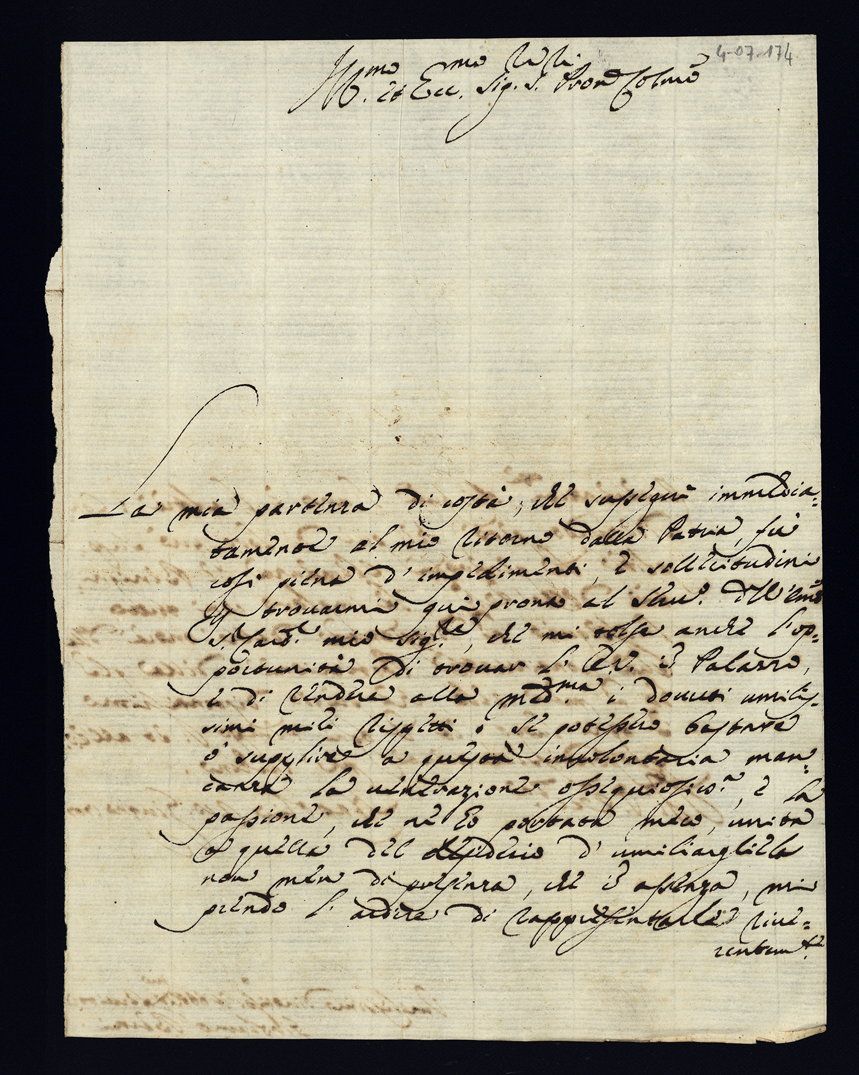 4-07-174
Ill.mo et Ecc.mo Sig. S. Pron Colmo
La mia partenza di costà, che susseguì immedia-
tamente al mio ritorno dalla Patria, fù
così piena d'impedimenti, e sollecitudini
p trovarmi quì pronto al Serv.o dell'Emo
S.r Card.l mio Sig.re, che mi tolse anche l'op-
portunità di trovar l' in Palazzo,
e di rendere alla med.ma i dovuti umilis-
simi miei rispetti; se potessero bastare
à supplire a questa involontaria man-
canza la venerazione ossequiosis.a, e la
passione, che nè hò portata meco, unita
a quella del desiderio d'umiliargliela
non men di presenza, che in assenza, mi
prendo l'ardire di rappresentarle rive-
rentem.te